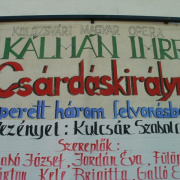 KOLOZSVÁRI MAGYAR OPERA
KÁLMÁN IMRE
Csárdáskirályn
perett három felvonásb
ezényel: Kulcsár Szabolc
Szereplők:
abó József, Jordán Éva, Fülöp
árton, Kele Brigitta, Galló E